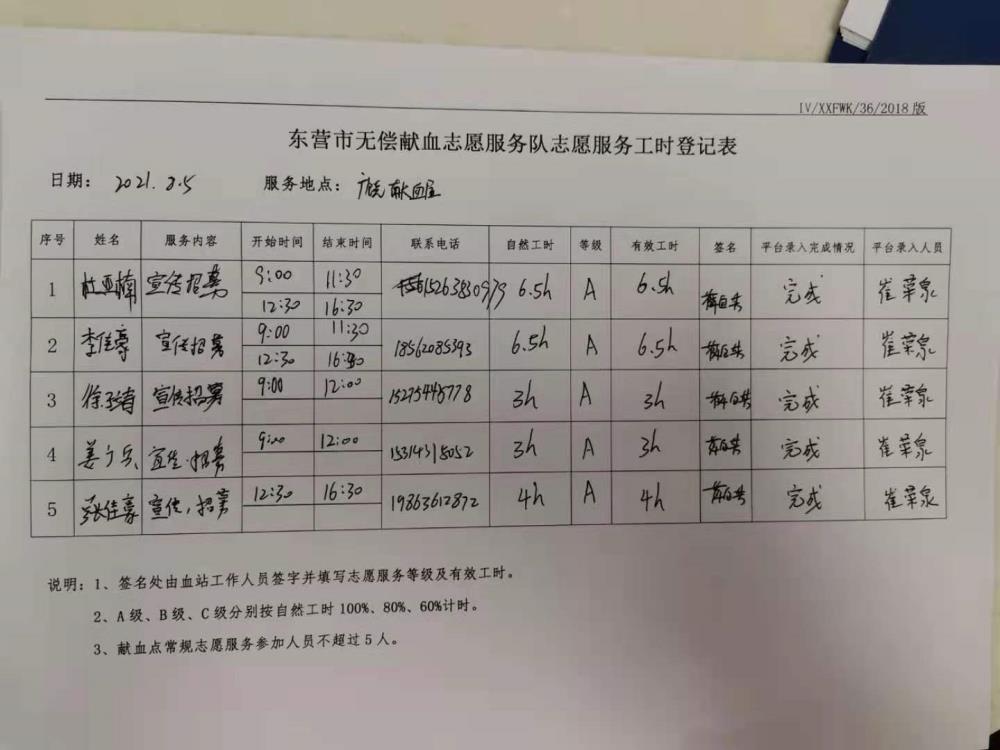 IV/XXFWK/36/2018版
东营市无偿献血志愿服务队志愿服务工时登记表
日期: 2021.8.5 服务地点: 广饶献血屋
序号 姓名 服务内容 开始时间 结束时间 联系电话 自然工时 等级 有效工时 签名 平台录入完成情况 平台录入人员
1 杜亚楠 宣传招募 9:00 11:30 15263830979 6.5h A 6.5h 完成 崔荣泉
12:30 16:30
2 李佳豪 宣传招募 9:00 11:30 18562085393 6.5h A 6.5h 完成 崔荣泉
12:30 16:30
3 宣传招募 9:00 12:00 3h A 3h 完成 崔荣泉
4 宣传.招募 9:00 12:00 15314315052 3h A 3h 完成 崔荣泉
5 张佳豪 宣传,招募 12:30 16:30 19863612872 4h A 4h 完成 崔荣泉
说明:1、签名处由血站工作人员签字并填写志愿服务等级及有效工时。
2、A级、B级、C级分别按自然工时100%、80%、60%计时。
3、献血点常规志愿服务参加人员不超过5人。